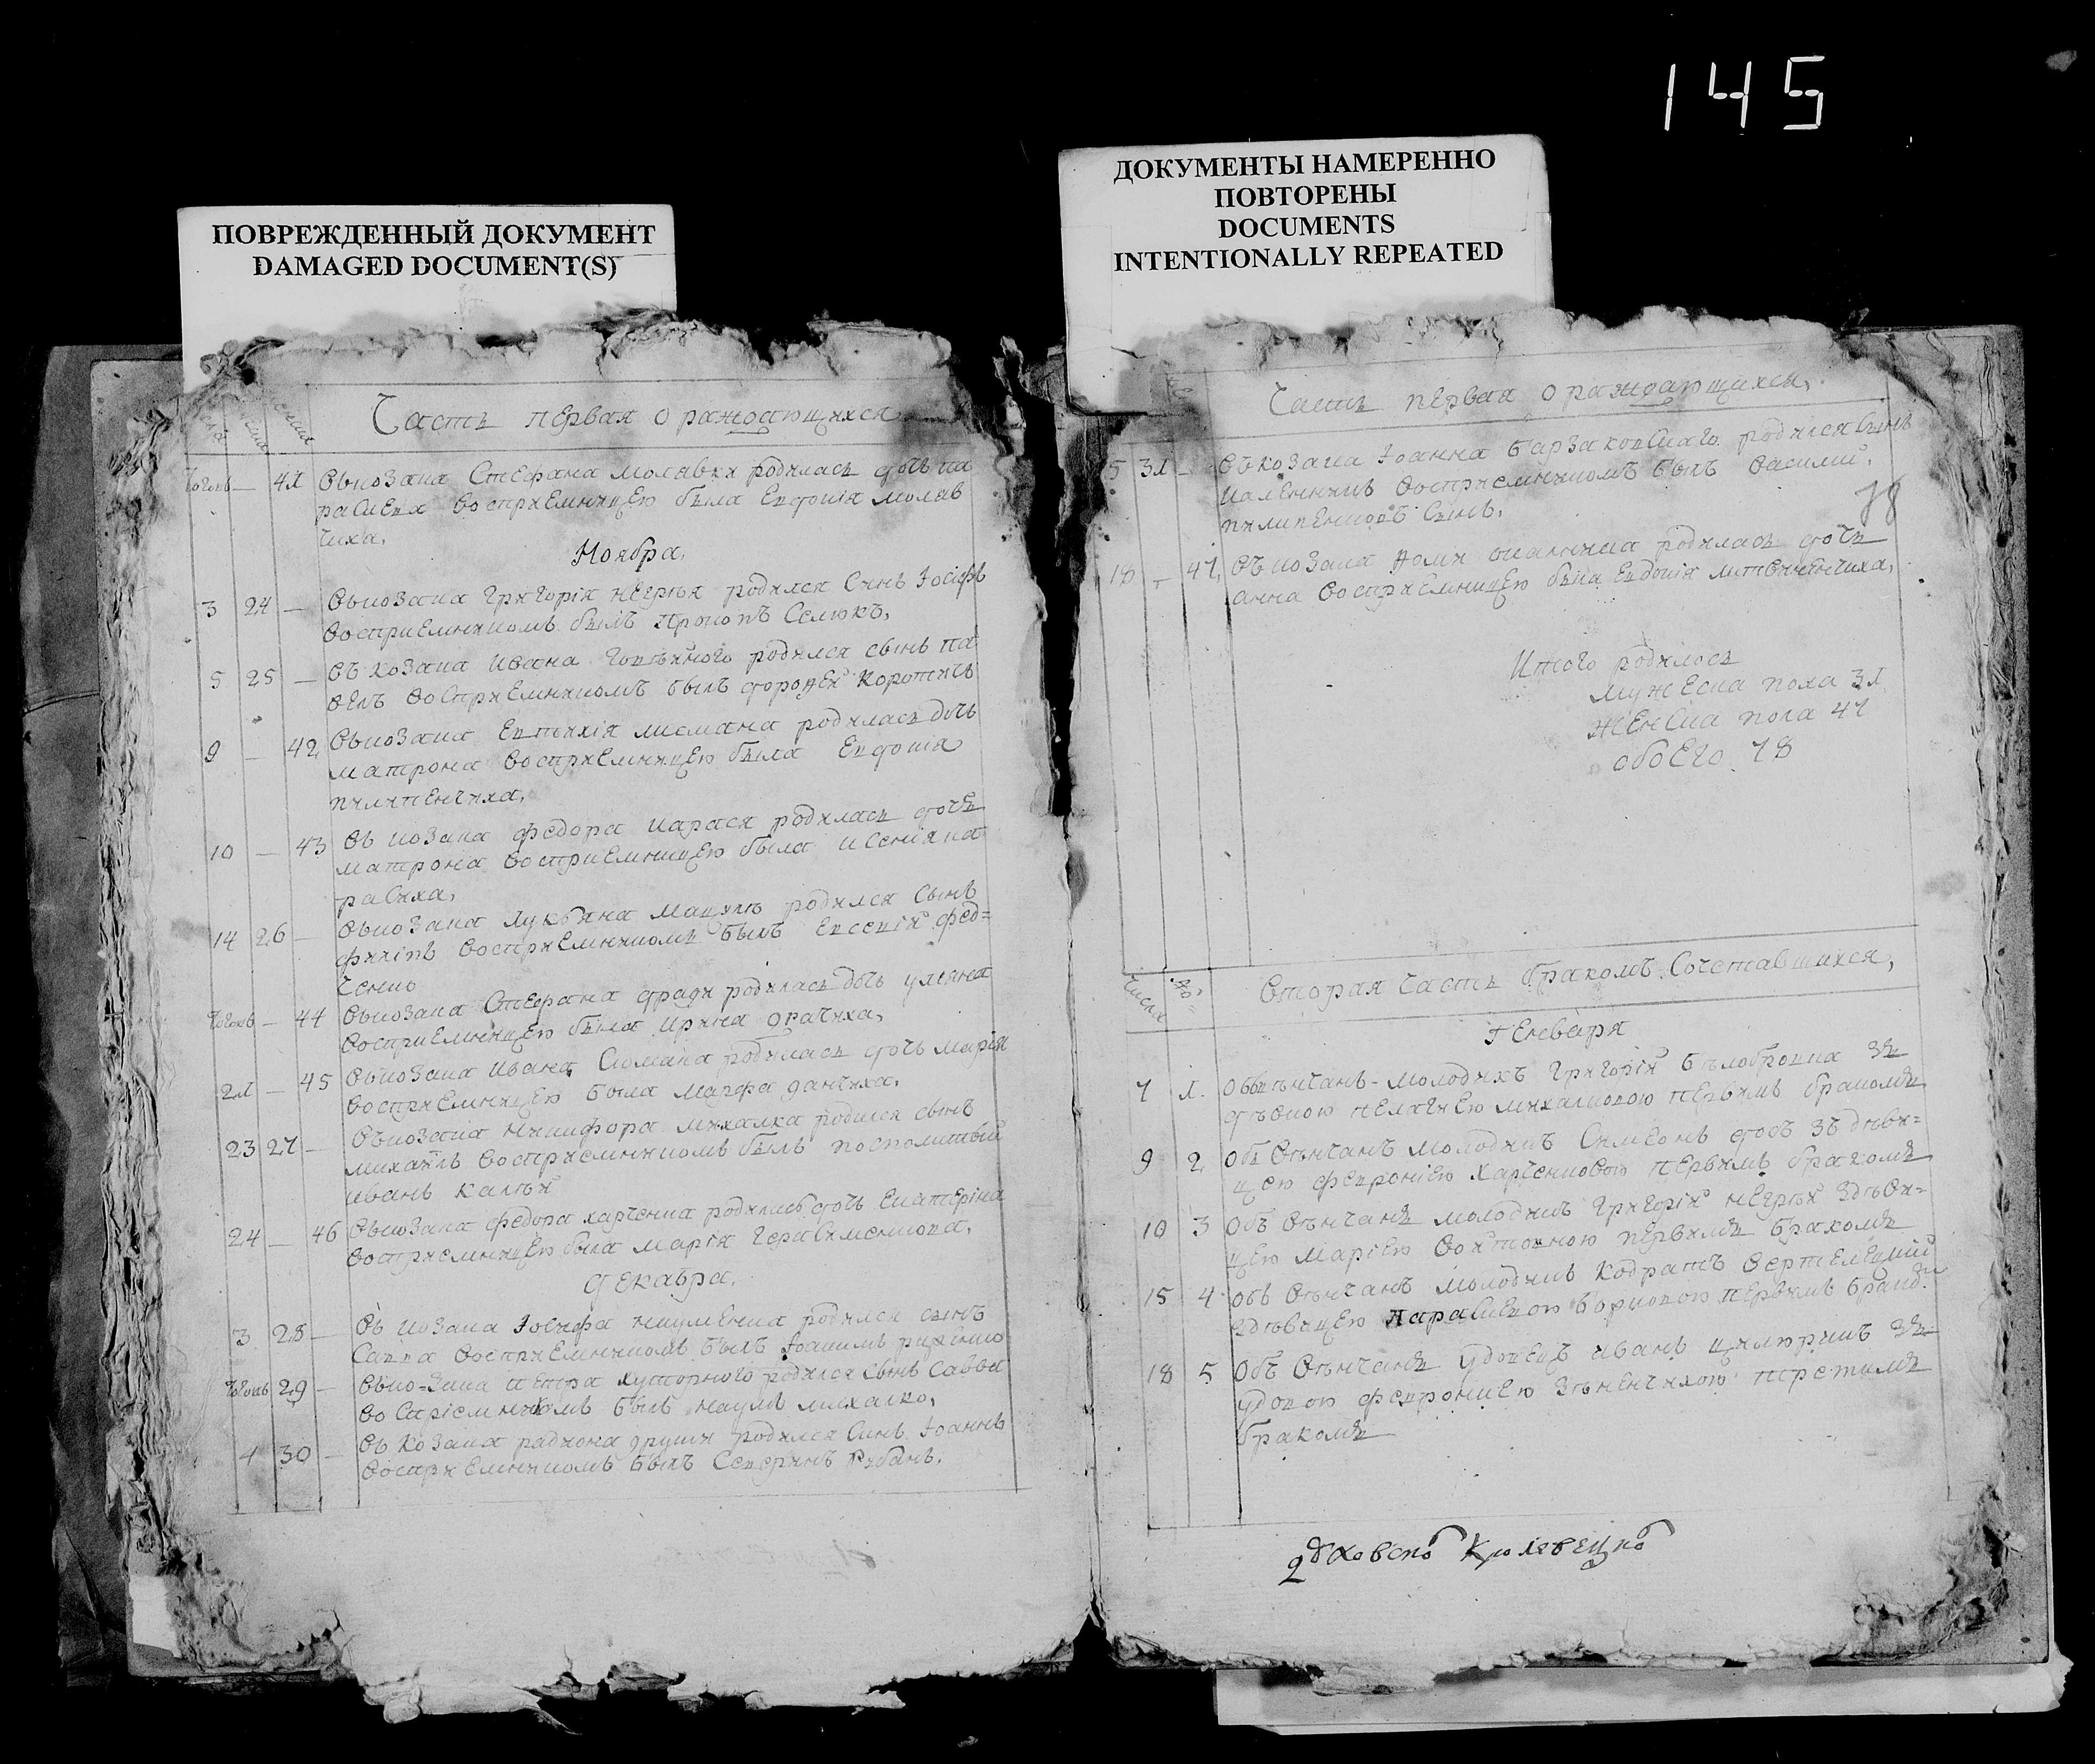 145
ПОВРЕЖДЕННЫЙ ДОКУМЕНТ
DAMAGED DOCUMENT(S)
ДОКУМЕНТЫ НАМЕРЕННО
ПОВТОРЕНЫ
DOCUMENTS
INTENTIONALLY REPEATED
Часть первая о раждающихся
41 Въ козака Стефана Молявки родилась дочь Па
раскева восприемницею была Евдокія Моляв
чиха.
Ноября.
3 24 — Въ козака Григорія Негрѣя родился синъ Іосифъ
восприемникомъ былъ Прокопъ Селюкъ,
5 25 — Въ козака Ивана родился сынъ Па
велъ восприемникомъ былъ Дорофей Коротичъ
9 — 42 Въ козака Евтихія Лисмана родилась дочь
Матрона восприемницею была Евдокія
Пилипенчиха,
10 — 43 Въ козака Федора Карася родилась дочь
Матрона восприемницею была Ксенія Ка
расиха,
14 26 — Въ козака Лукьяна родился сынъ
Филіпъ восприемникомъ былъ Евсевій Фед=
ченко
— 44 Въ козака Стефана родилась дочь Уліяна
восприемницею была Ирина Драчиха,
21 — 45 Въ козака Ивана родилась дочь Марія
восприемницею была Марфа Данчиха.
23 27 — Въ козака Никифора Михалка родился сынъ
Михайлъ восприемникомъ былъ посполитый
Иванъ
24 — 46 Въ козака Федора Харченка родилась дочь Екатеріна
восприемницею была Марія Герасименкова,
Декабра.
3 28 — Въ козака Іосифа Науменка родился сынъ
Савва восприемникомъ былъ Іоакимъ
29 — Въ ко=зака Петра Хуторного родился сынъ Савва
воспріемникомъ былъ Наумъ Михалко,
4 30 — Въ козака Радиона родился синъ Іоаннъ
восприемникомъ былъ Северинъ Рубанъ.
Часть первая о раждающихся,
5 31 — Въ козака Іоанна Барзаковскаго родился сынъ
восприемникомъ былъ Василий
Пилипенковъ синъ.
78
10 — 47 Въ козака родилась дочь
Анна восприемницею была Евдокія Литвиненчиха,
Итого родилось
мужеска пола 31
женска пола 47
обоего 78
Числа
Вторая часть бракомъ сочетавшихся,
Генваря
7 1. Обвѣнчанъ молодикъ Григорій Бѣлобровка зъ
дѣвкою Пелагиею Михалковою первимъ бракомъ
9 2 Обвѣнчанъ молодикъ Симеонъ зъ дѣви=
цею Февроніею Харченковою первимъ бракомъ
10 3 Объ вѣнчанъ молодикъ Григорій Негрѣй здѣви=
цею Маріею первимъ бракомъ
15 4 Объ вѣнчанъ молодикъ Кодратъ Вертелецкий
здѣвицею Параскевою Борисовою первимъ
18 5 Объ вѣнчанъ удовецъ Иванъ Цилюрикъ зъ
удовою Феврониею третимъ
бракомъ